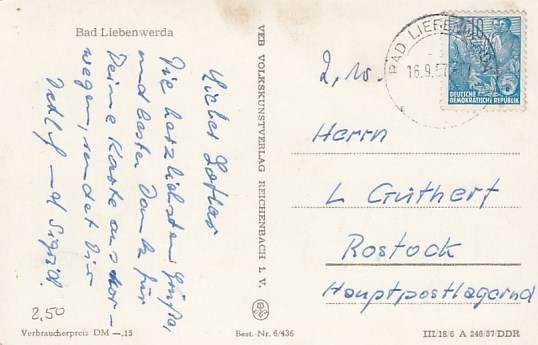 Bad Liebenwerda
Lieber Lothar
Die herzlichsten Grüße,
und besten Dank für
Deine Karte aus Nor-
wegen, sendet Dir
Detlef und Sigrid.
2,50
Verbraucherpreis DM —,15
VEB VOLKSKUNSTVERLAG REICHENBACH I. V.
Best.-Nr. 6/436
BAD LIEBENWERDA
16.9.57
10
DEUTSCHE
DEMOKRATISCHE REPUBLIK
Herrn
L Guthert
Rostock
Hauptpostlagernd
III/18/6 A 246/57/DDR